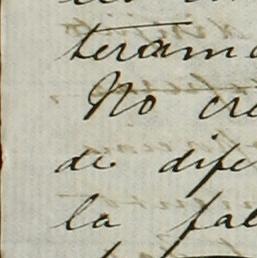 teram
No cre
de dife
la fal